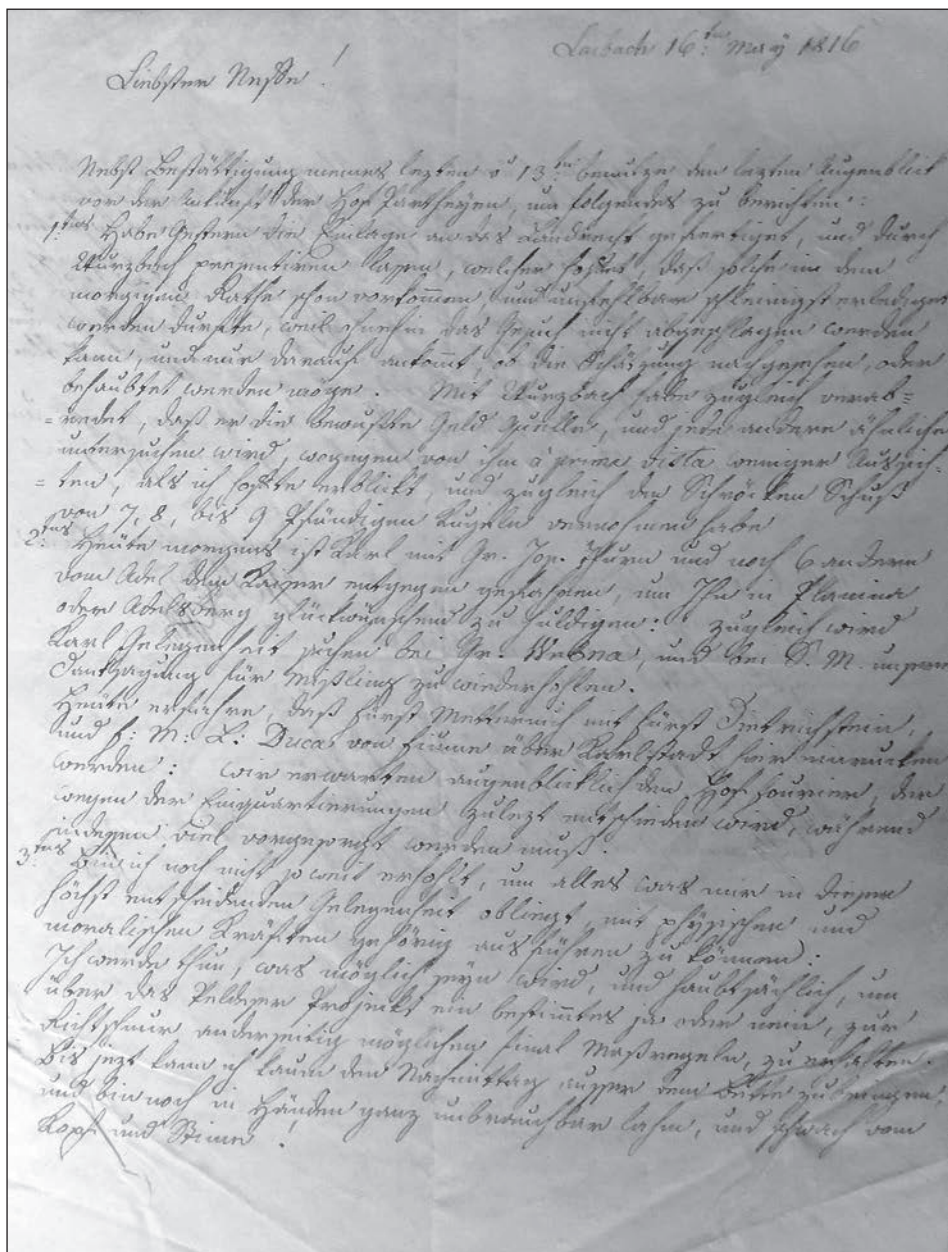 Laibach 16:ten May 1816
Liebster Neffe!
Nebst Bestättigung meines lezten v 13:ten benutze den lezten Augenblick
vor der Ankunft der Hof Partheyen, um folgendes zu berichten:
1:tens Habe Gestern die Einlage an das Landrecht gefertiget, und durch
Wurzbach presentiren lassen, welcher hoffet, daß solche in dem
morgigen Rathe schon vorkommen, und unfehlbar schleinigst erlediget
werden durfte, weil ohnehin das Gesuch nicht abgeschlagen werden
kann, und nur darauf ankommt, ob die Schätzung nachgesehen, oder
behaubtet werden möge. Mit Wurzbach habe zugleich verab=
=redet, daß er die bewußte Geld Quelle, und jede andere ähnliche
untersuchen wird, wogegen von ihm à prima vista weniger Aussich=
=ten, als ich hoffte erblickt, und zugleich den Schröcken Schuß
von 7, 8, bis 9 Pfündigen Kugeln vernohmen habe
2:tens Heute morgens ist Karl mit Gr. Jos. Thurn und noch 6 andern
vom Adel dem Kaiser entgegen gefahren, um Ihn in Planina
oder Adelsberg glückwünschend zu huldigen: zugleich wird
Karl Gelegenheit suchen bei Gr. Wrbna, und bei S. M. unsere
Danksagung für zu wiederhohlen.
Heute erfahre, daß Fürst Metternich mit Fürst Dietrichstein,
und F: M: L: Duca von Fiume über Karlstadt hier einrucken
werden: wir erwarten augenblicklich den Hof Fourier, der
wegen der Einquartierungen zulezt entscheiden wird, während
indessen viel vorgesorgt werden muß.
3:tens Bin ich noch nicht so weit erhohlt, um alles was mir in dieser
höchst entscheidenden Gelegenheit obliegt, mit physischen und
moralischen Kräften gehörig ausführen zu können:
Ich werde thun, was möglich seyn wird, und haubtsächlich, um
über das Veldeser Projeckt ein bestimmtes ja oder nein, zur
Richtschnur anderseitig möglichen final Maßregeln, zu erhalten.
Bis jezt kann ich kaum den Nachmittag ausser dem Bette zubringen,
und bin noch in Händen ganz unbrauchbar lahm, und schwach vom
Kopf und Stimme.